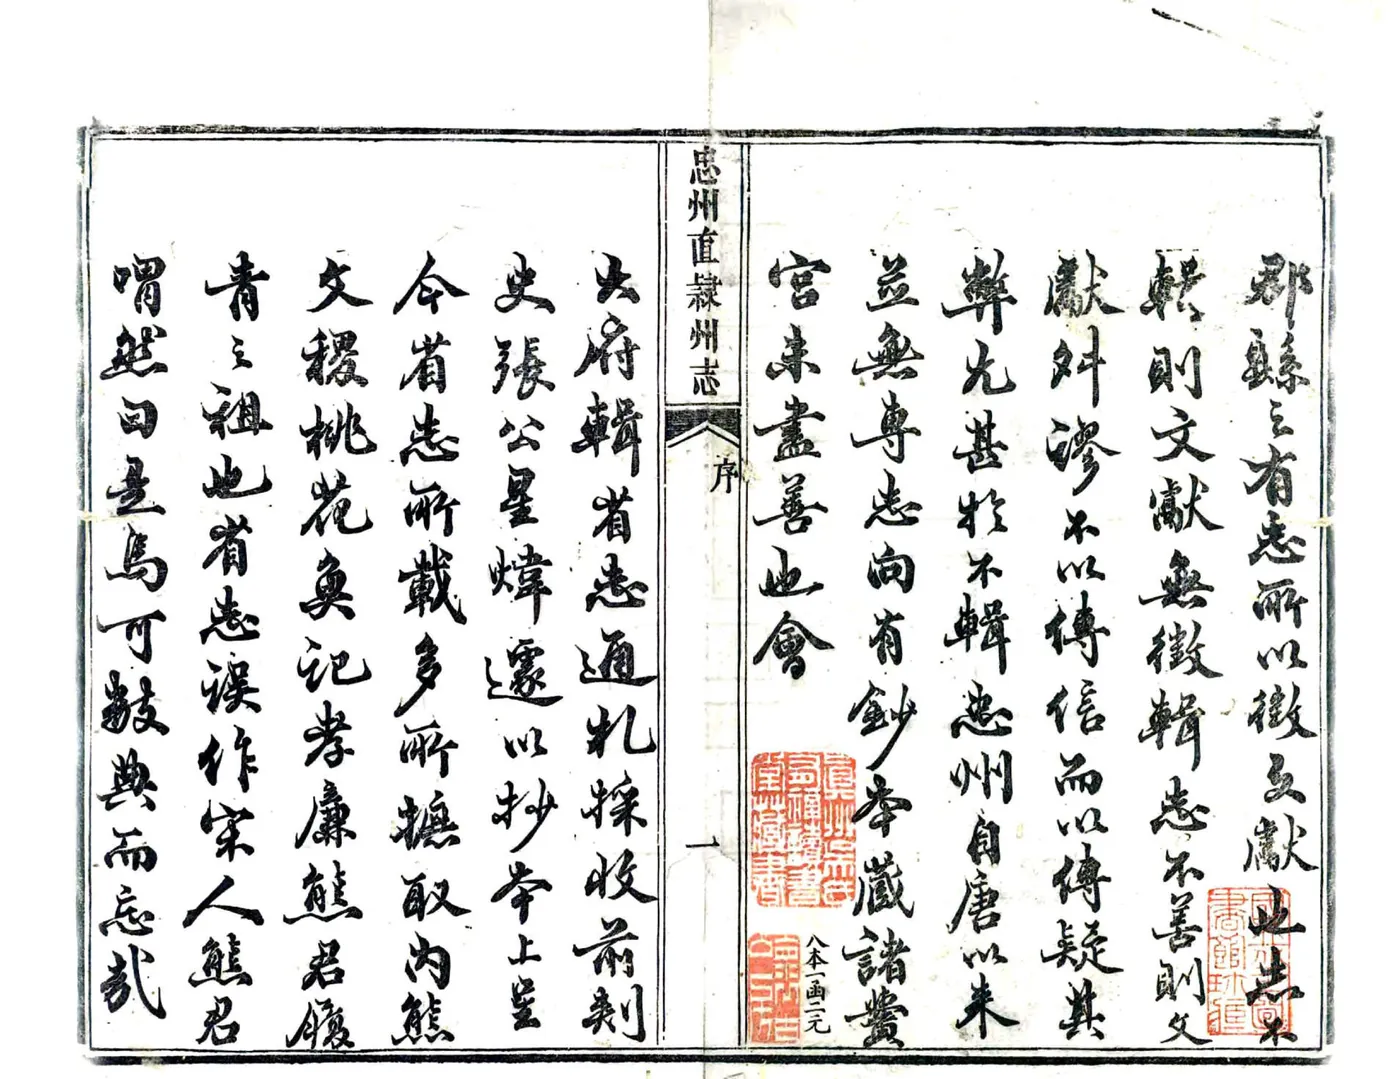 郡縣之有志所以徵文獻也志不
輯則文獻無徵輯志不善則文
獻舛謬不以傳信而以傳疑其
弊尤甚於不輯忠州自唐以來
並無專志向有鈔本藏諸黌
宮未盡善也會
八本一函二元
忠州直隸州志
序
一
大府輯省志通札採收前刺
史張公星煒遽以抄本上呈
今省志所載多所摭取內熊
文稷桃花奐記孝廉熊君履
青之祖也省志誤作宋人熊君
喟然曰是烏可數典而忘哉